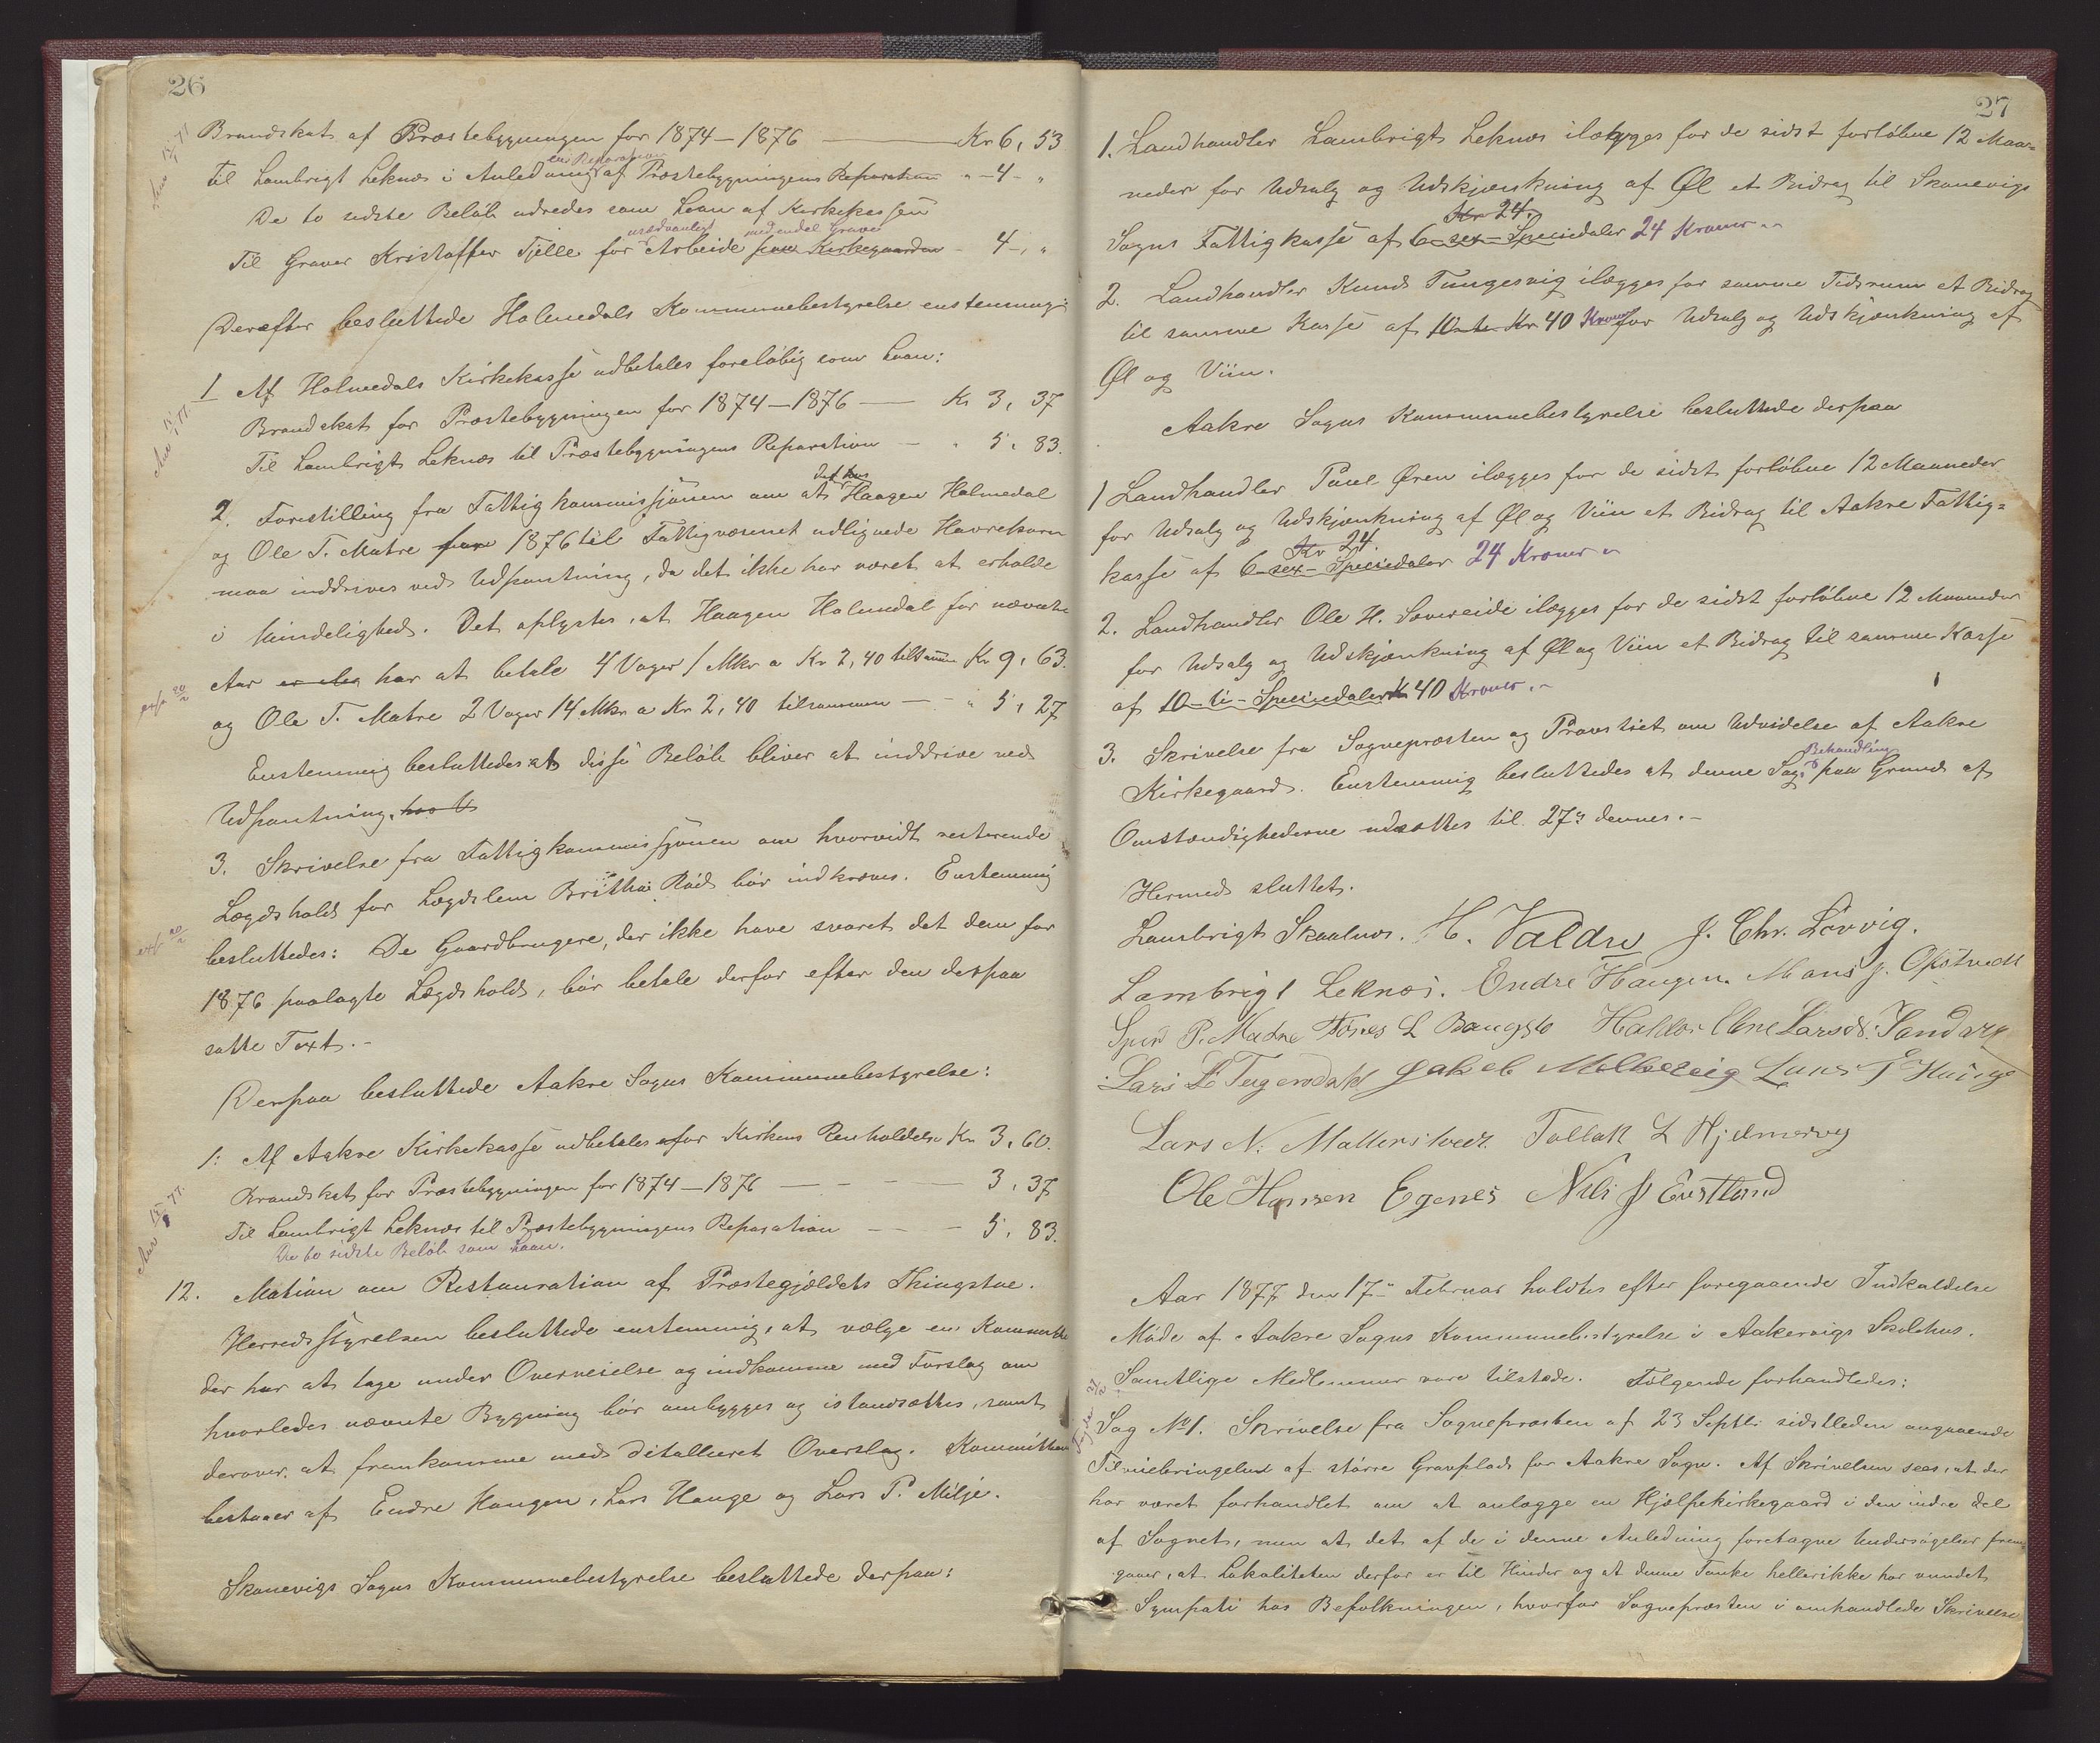 26
Brandskat af Præstebygningen for 1874-1876 — Kr 6, 53
en Reparation
til Lambrigt Leknæs i Anledning af Præstebygningens Reparation " -4- "
De to sidste Beløb udredes som Laan af Kirkekassen
usædvanligt med endel Grave
Til Graver Kristoffer Tjelle for Arbeide paa Kirkegaarden - 4-, "
Derefter besluttede Holmedals Kommunebestyrelse enstemmig:
1 Af Holmedals Kirkekasse udbetales foreløbig som Laan:
Brandskat for Præstebygningen for 1874-1876 — Kr 3, 37
Til Lambrigt Leknæs til Præstebygningens Reparation — " 5, 83.
det hos
2. Forestilling fra Fattigkommissjonen om at Haagen Holmedal
og Ole T. Matre for 1876 til Fattigvæsenet udlignede Havrekorn
maa inddrives ved Udpantning, da det ikke har været at erholde
i Mindelighed. Det oplystes, at Haagen Holmedal for nævnte
Aar er eler har at betale 4 Voger 1 Mkr a Kr 2,40 tilsammen Kr 9, 63.
og Ole T. Matre 2 Voger 14 Mkr a Kr 2,40 tilsammen — " 5, 27
Enstemmig besluttedes at disse Beløb bliver at inddrive ved
Udpantning. hos U
3. Skrivelse fra Fattigkommissjonen om hvorvidt resterende
Lægdshold for Lægdslem Britha Röd bör indkræves. Enstemmig
besluttedes: De Gaardbrugere, der ikke have svaret det dem for
1876 paalagte Lægdshold, bör betale derfor efter den derpaa
satte Taxt.-
Derpaa besluttede Aakre Sogns Kommunebestyrelse:
1: Af Aakre Kirkekasse udbetales for Kirkens Renholdelse Kr 3, 60.
Brandskat for Præstebygningen for 1874-1876 — 3, 37
Til Lambrigt Leknæs til Præstebygningens Reparation — 5, 83.
De to sidste Beløb som Laan.
12. Motion om Restauration af Præstegjældets Thingstue.
Herredsstyrelsen besluttede enstemmig, at vælge en Kommitte
der har at tage under Overveielse og indkomme med Forslag om
hvorledes nævnte Bygning bör ombygges og istandsættes, samt
derover at fremkomme med ditalleret Overslag. Kommitteen
bestaaer af Endre Haugen, Lars Hauge og Lars P. Milje.
Skonevigs Sogns Kommunebestyrelse besluttede derpaa:
27
1. Landhandler Lambrigt Leknæs ilægges for de sidst forløbne 12 Maa=
neder for Udsalg og Udskjænkning af Øl et Bidrag til Skonevigs
Kr 24.
Sogns Fattigkasse af 6 sex - Speciedaler 24 Kroner "-
2. Landhandler Knud Tungesvig ilægges for samme Tidsrum et Bidrag
til samme Kasse af 10 ti Kr 40 Kroner for Udsalg og Udskjænkning af
Øl og Viin.
Aakre Sogns Kommunebestyrelse besluttede derpaa
1 Landhandler Poul Øren ilægges for de sidst forløbne 12 Maaneder
for Udsalg og Udskjænkning af Øl og Viin et Bidrag til Aakre Fattig=
Kr 24.
kasse af 6 - sex - Speciedaler 24 Kroner "
2. Landhandler Ole H. Sævereide ilægges for de sidst forløbne 12 Maaneder
for Udsalg og Udskjænkning af Øl og Viin et Bidrag til samme Kasse
af 10 - ti - Speciedaler Kr 40 Kroner.-
3. Skrivelse fra Sognepræsten og Provstiet om Udvidelse af Aakre
Behandling
Kirkegaard. Enstemmig besluttedes at denne Sags paa Grund af
Omstændighederne udsættes til 27de dennes.-
Hermed sluttet.
Lambrigt Skaalnæs. H. Valdre J. Chr. Lövvig.
Lambrigt Leknæs. Endre Haugen. Mons J. Opstvedt
P. Matre Tönes L Baugsto Haktor Larsd. Sandvig
Lars L Tugendahl Jakob Molkevig T Hauge
Lars N. Mattersteed. Tollak L Hjelmevig
Ole Hansen Egenes Nils J Eustland
Aar 1877 den 17de Februar holdtes efter foregaaende Indkaldelse
Møde af Aakre Sogns Kommunebestyrelse i Aakervigs Skolehus.
Samtlige Medlemmer vare tilstæde. Følgende forhandledes:
Sag No 1. Skrivelse fra Sognepræsten af 23 Septbr sidstleden angaaende
Tilveiebringelse af større Gravplads for Aakre Sogn. Af Skrivelsen sees, at der
har været forhandlet om at anlægge en Hjælpekirkegaard i den indre Del
af Sognet, men at det af de i denne Anledning foretagne Undersøgelser frem=
gaaer, at Lokaliteten derfor er til Hinder og at denne Tanke hellerikke har vundet
Sympati hos Befolkningen, hvorfor Sognepræsten i omhandlede Skrivelse